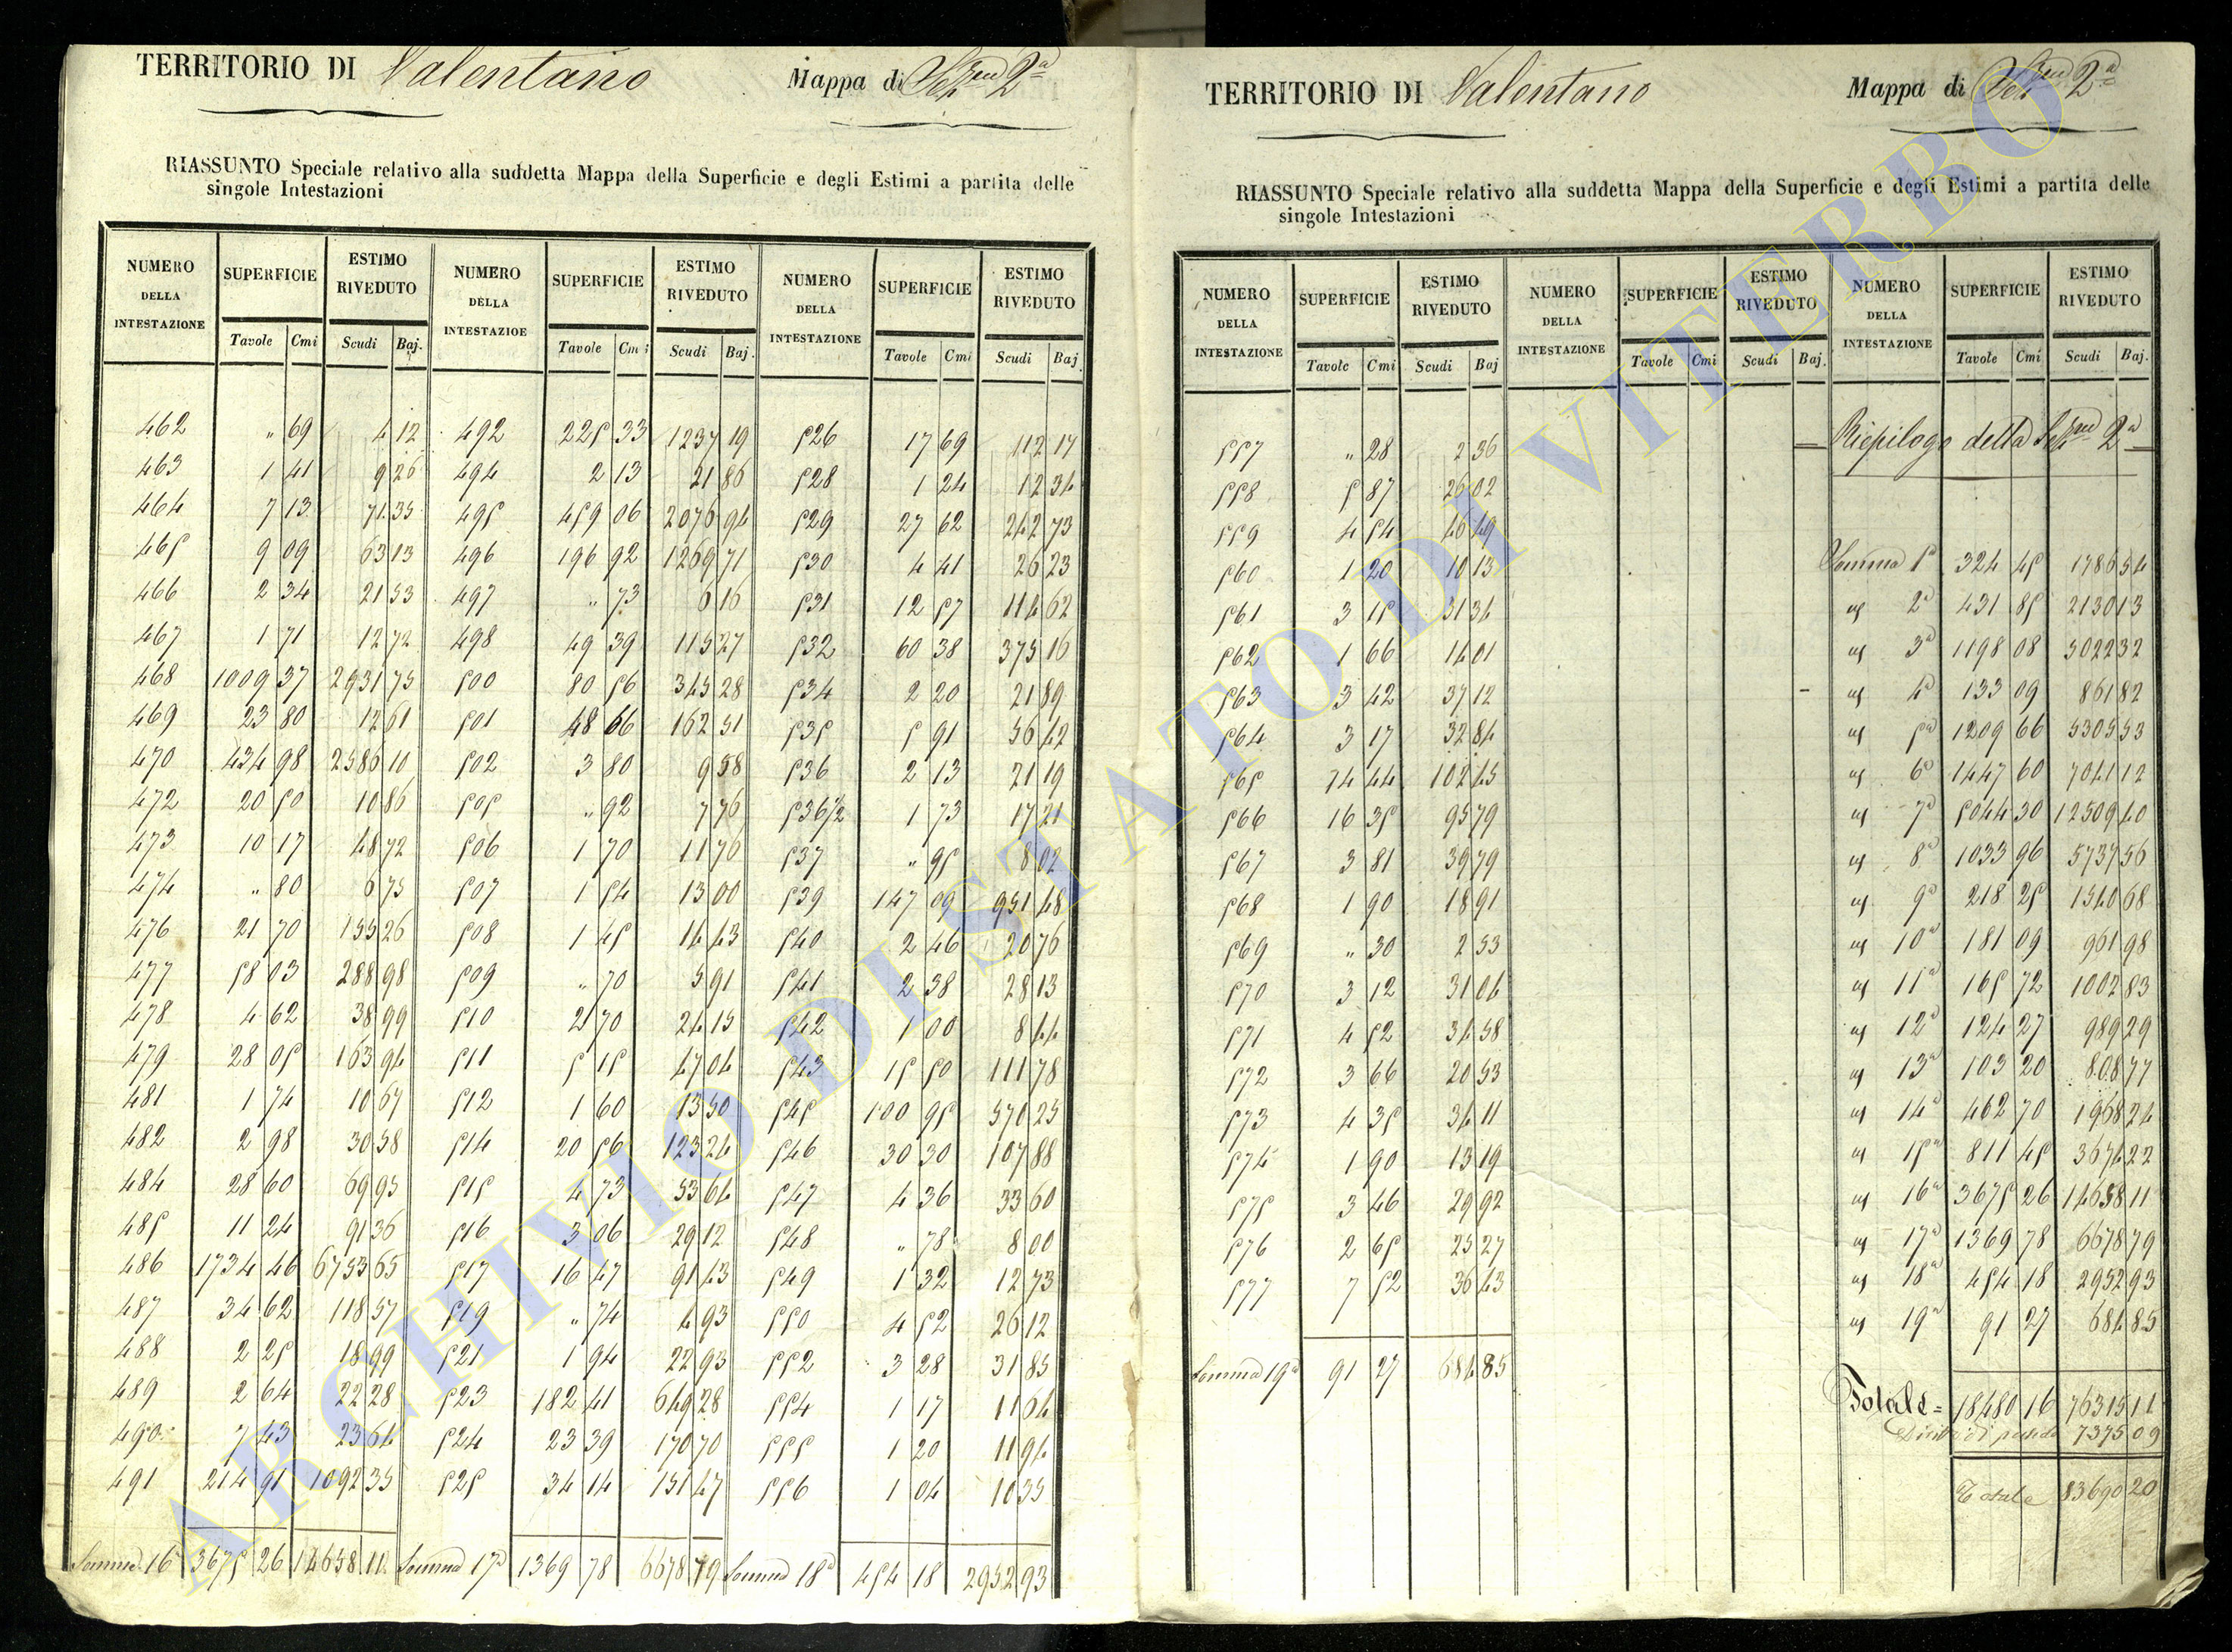 TERRITORIO DI Valentano Mappa di Sezne 2a
RIASSUNTO Speciale relativo alla suddetta Mappa della Superficie e degli Estimi a partita delle
singole Intestazioni
NUMERO DELLA INTESTAZIONE SUPERFICIE ESTIMO RIVEDUTO NUMERO DELLA INTESTAZIOE SUPERFICIE ESTIMO RIVEDUTO NUMERO DELLA INTESTAZIONE SUPERFICIE ESTIMO RIVEDUTO
Tavole Cmi Scudi Baj. Tavole Cmi Scudi Baj. Tavole Cmi Scudi Baj.
462 " 69 4 12 492 225 33 1237 19 526 17 69 112 17
463 1 41 9 26 494 2 13 21 86 528 1 24 12 34
464 7 13 71 35 495 459 06 2076 94 529 27 62 242 73
465 9 09 63 13 496 196 92 1269 71 530 4 41 26 23
466 2 34 21 53 497 " 73 6 16 531 12 57 114 62
467 1 71 12 72 498 49 39 115 27 532 60 38 375 16
468 1009 37 2931 75 500 80 56 345 28 534 2 20 21 89
469 23 80 12 61 501 48 66 162 51 535 5 91 56 42
470 434 98 2586 10 502 3 80 9 58 536 2 13 21 19
472 20 50 10 86 505 " 92 7 76 536½ 1 73 17 21
473 10 17 48 72 506 1 70 11 76 537 " 95 8 02
474 " 80 6 75 507 1 54 13 00 539 147 09 951 48
476 21 70 155 26 508 1 45 14 43 540 2 46 20 76
477 58 03 288 98 509 " 70 5 91 541 2 38 28 13
478 4 62 38 99 510 2 70 24 15 542 1 00 8 44
479 28 05 163 94 511 5 15 47 04 543 15 50 111 78
481 1 74 10 67 512 1 60 13 50 545 100 95 570 25
482 2 98 30 58 514 20 56 123 24 546 30 30 107 88
484 28 60 69 95 515 4 73 53 64 547 4 36 33 60
485 11 24 91 36 516 3 06 29 12 548 " 78 8 00
486 1734 46 6753 65 517 16 47 91 43 549 1 32 12 73
487 34 62 118 57 519 " 74 4 93 550 4 52 26 12
488 2 25 18 99 521 1 94 22 93 552 3 28 31 85
489 2 64 22 28 523 182 41 649 28 554 1 17 11 64
490 7 43 23 64 524 23 39 170 70 555 1 20 11 94
491 214 91 1092 35 525 34 14 151 47 556 1 04 10 35
Somma 16a 3675 26 14658 11 Somma 17a 1369 78 6678 79 Somma 18a 454 18 2952 93
TERRITORIO DI Valentano Mappa di Sezne 2a
RIASSUNTO Speciale relativo alla suddetta Mappa della Superficie e degli Estimi a partita delle
singole Intestazioni
NUMERO DELLA INTESTAZIONE SUPERFICIE ESTIMO RIVEDUTO NUMERO DELLA INTESTAZIONE SUPERFICIE ESTIMO RIVEDUTO NUMERO DELLA INTESTAZIONE SUPERFICIE ESTIMO RIVEDUTO
Tavole Cmi Scudi Baj Tavole Cmi Scudi Baj. Tavole Cmi Scudi Baj.
557 " 28 2 36
558 5 87 26 02
559 4 54 46 49
560 1 20 10 13
561 3 15 31 34
562 1 66 14 01
563 3 42 37 12
564 3 17 32 84
565 14 44 102 45
566 16 35 95 79
567 3 81 39 79
568 1 90 18 91
569 " 30 2 53
570 3 12 31 04
571 4 52 34 58
572 3 66 20 53
573 4 35 34 11
574 1 90 13 19
575 3 46 29 92
576 2 65 25 27
577 7 52 36 43
Somma 19a 91 27 684 85
Riepilogo della Sezne 2a
Somma 1a 324 45 1786 54
" 2a 431 85 2130 13
" 3a 1198 08 5022 32
" 4a 133 09 861 82
" 5a 1209 66 5305 53
" 6a 1447 60 7041 12
" 7a 5044 30 12509 40
" 8a 1033 96 5737 56
" 9a 218 25 1540 68
" 10a 181 09 961 98
" 11a 165 72 1002 83
" 12a 124 27 989 29
" 13a 103 20 808 77
" 14a 462 70 1968 24
" 15a 811 45 3674 22
" 16a 3675 26 14658 11
" 17a 1369 78 6678 79
" 18a 454 18 2952 93
" 19a 91 27 684 85
Totale = 18480 16 76315 11
7375 09
Totale 83690 20
ARCHIVIO DI STATO DI VITERBO